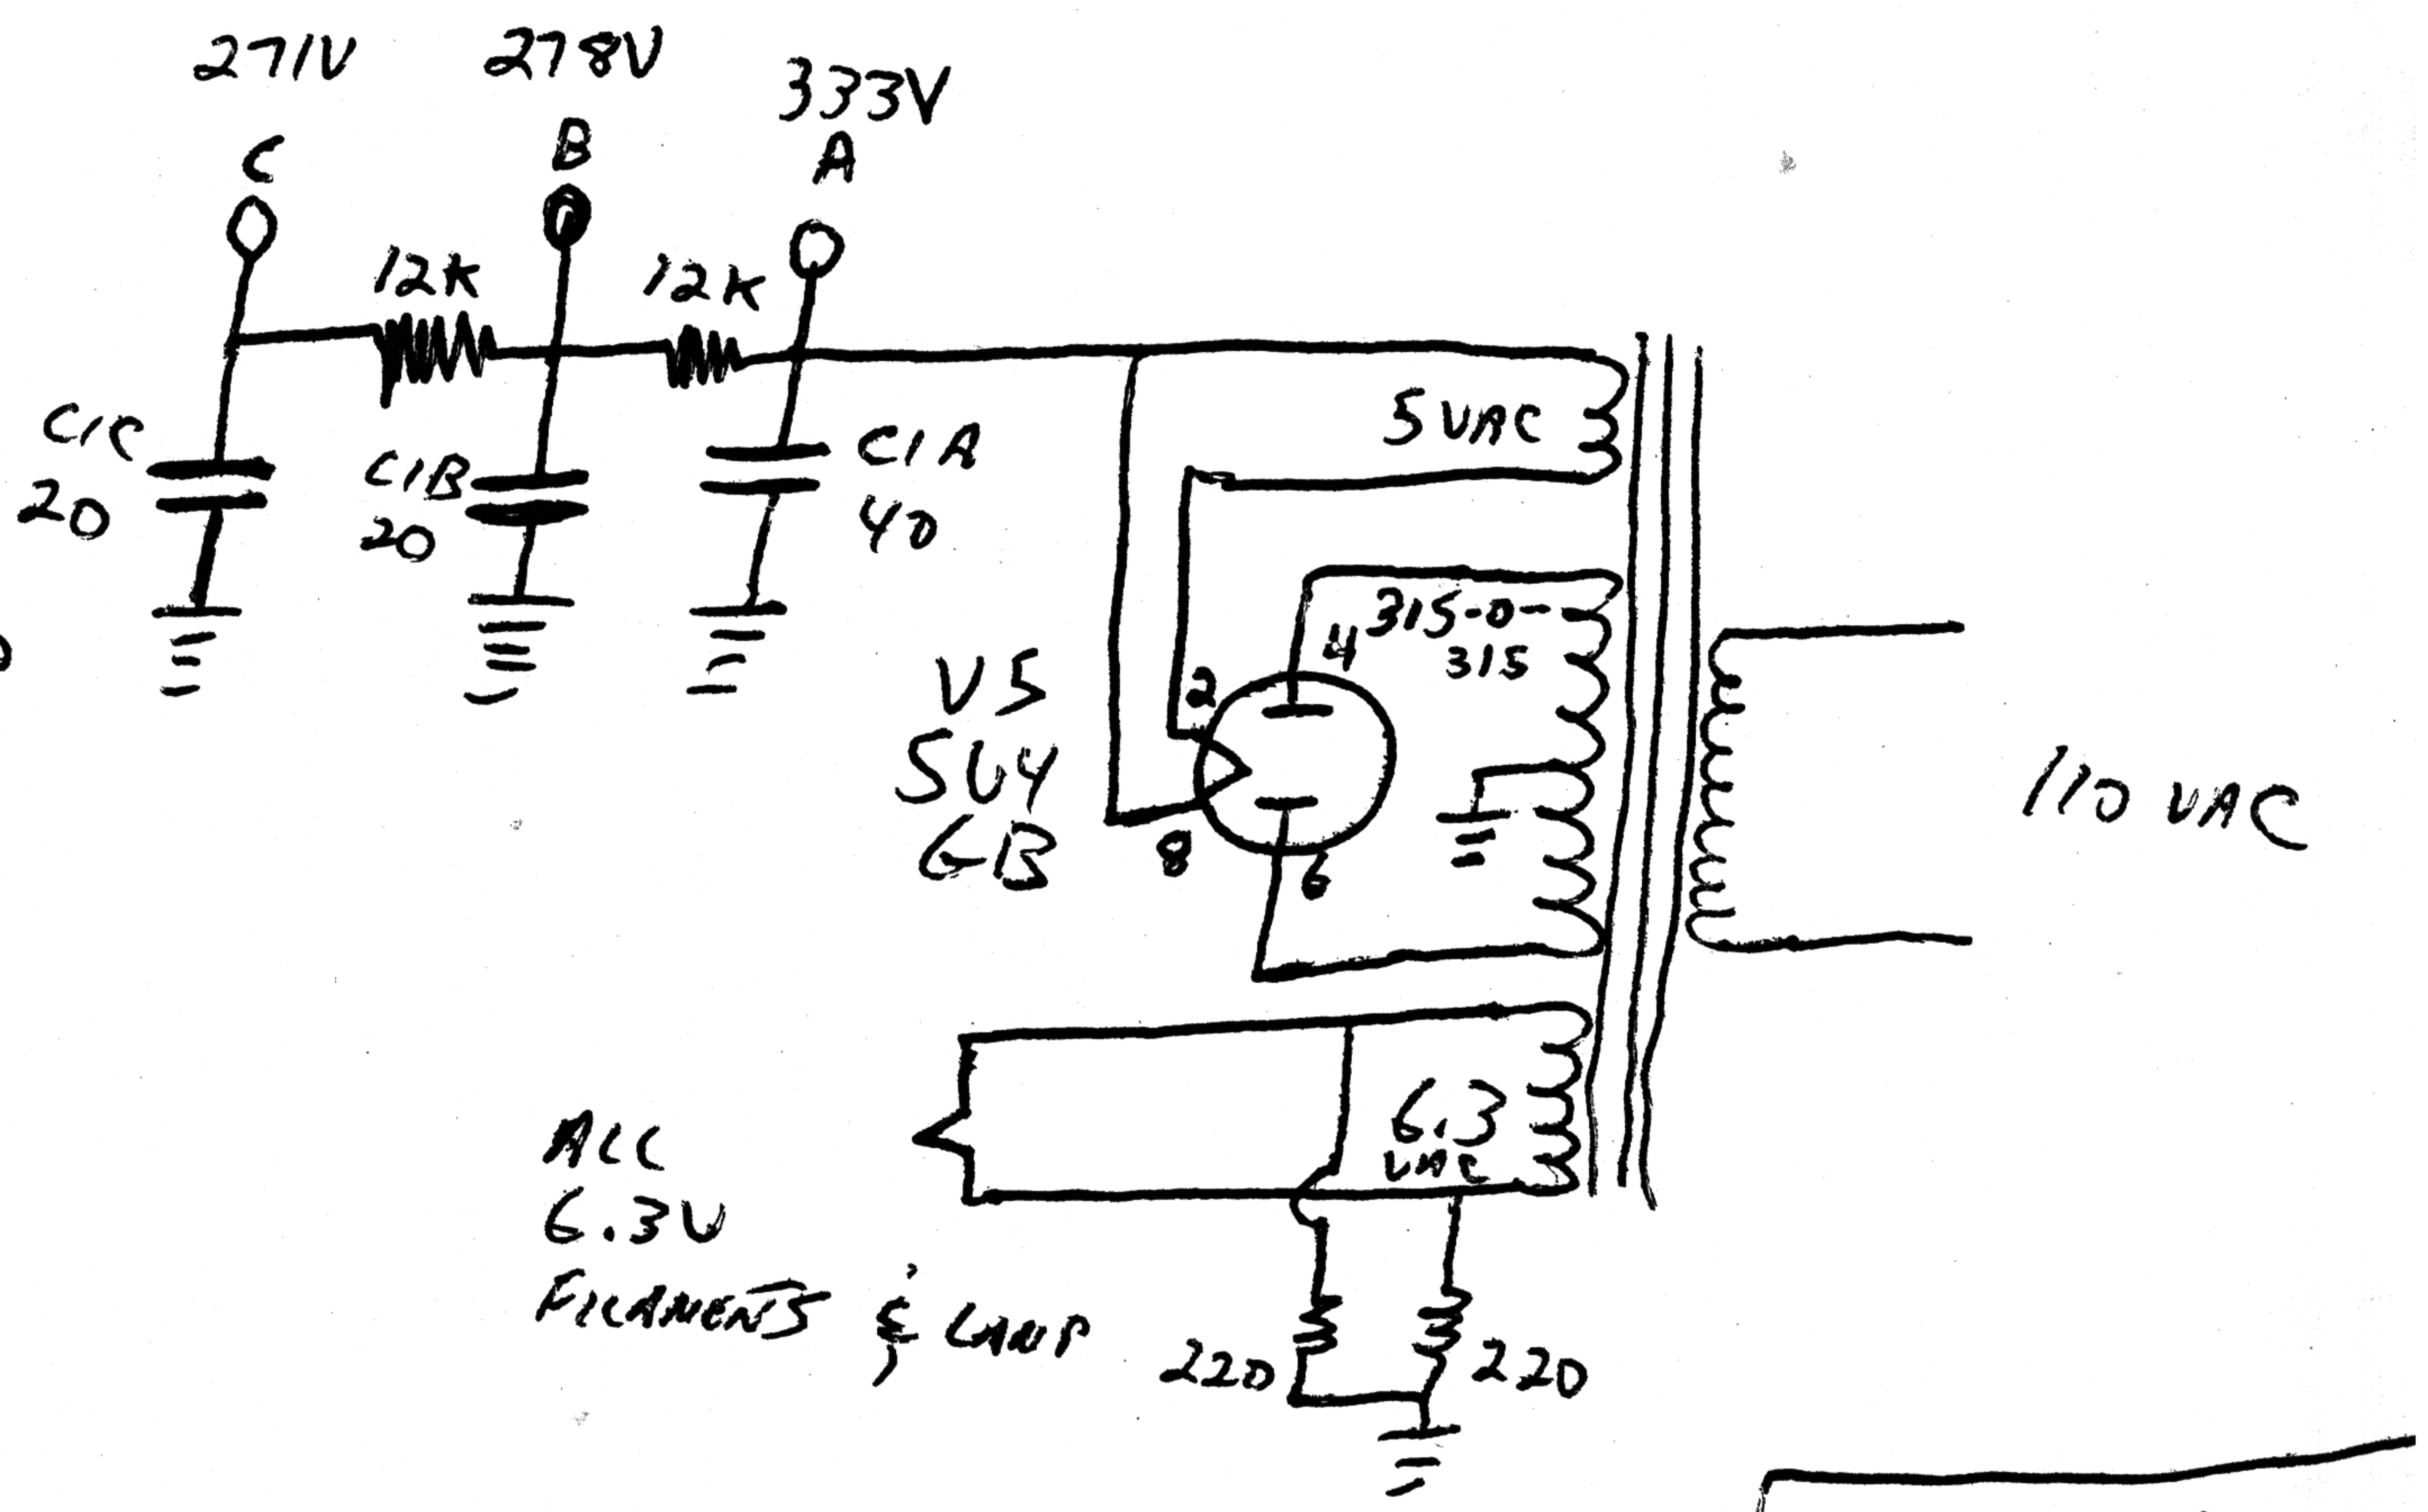 271V
278V
333V
C
B
A
12K
12K
C1C
20
C1B
20
C1A
40
5 VAC
315-0-
315
4
2
V5
5U4
GB
8
6
110 VAC
6.3
VAC
ALL
6.3V
FILAMENTS & LAMP
220
220